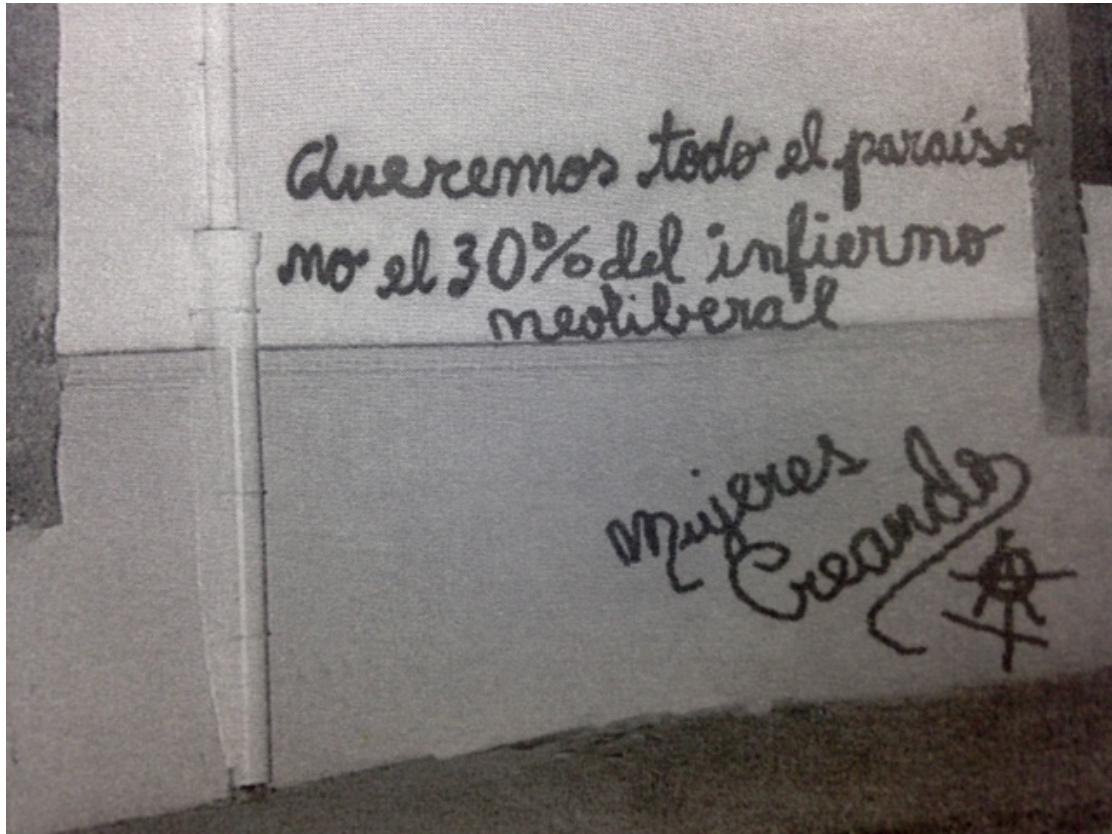 Queremos todo el paraíso
no el 30% del infierno
neoliberal
Mujeres
Creando